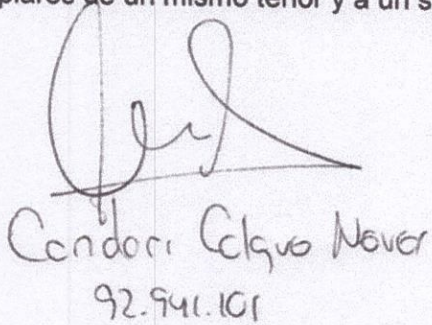 plares de un mismo tenor y a un s
Condori Calque Never
92.941.101